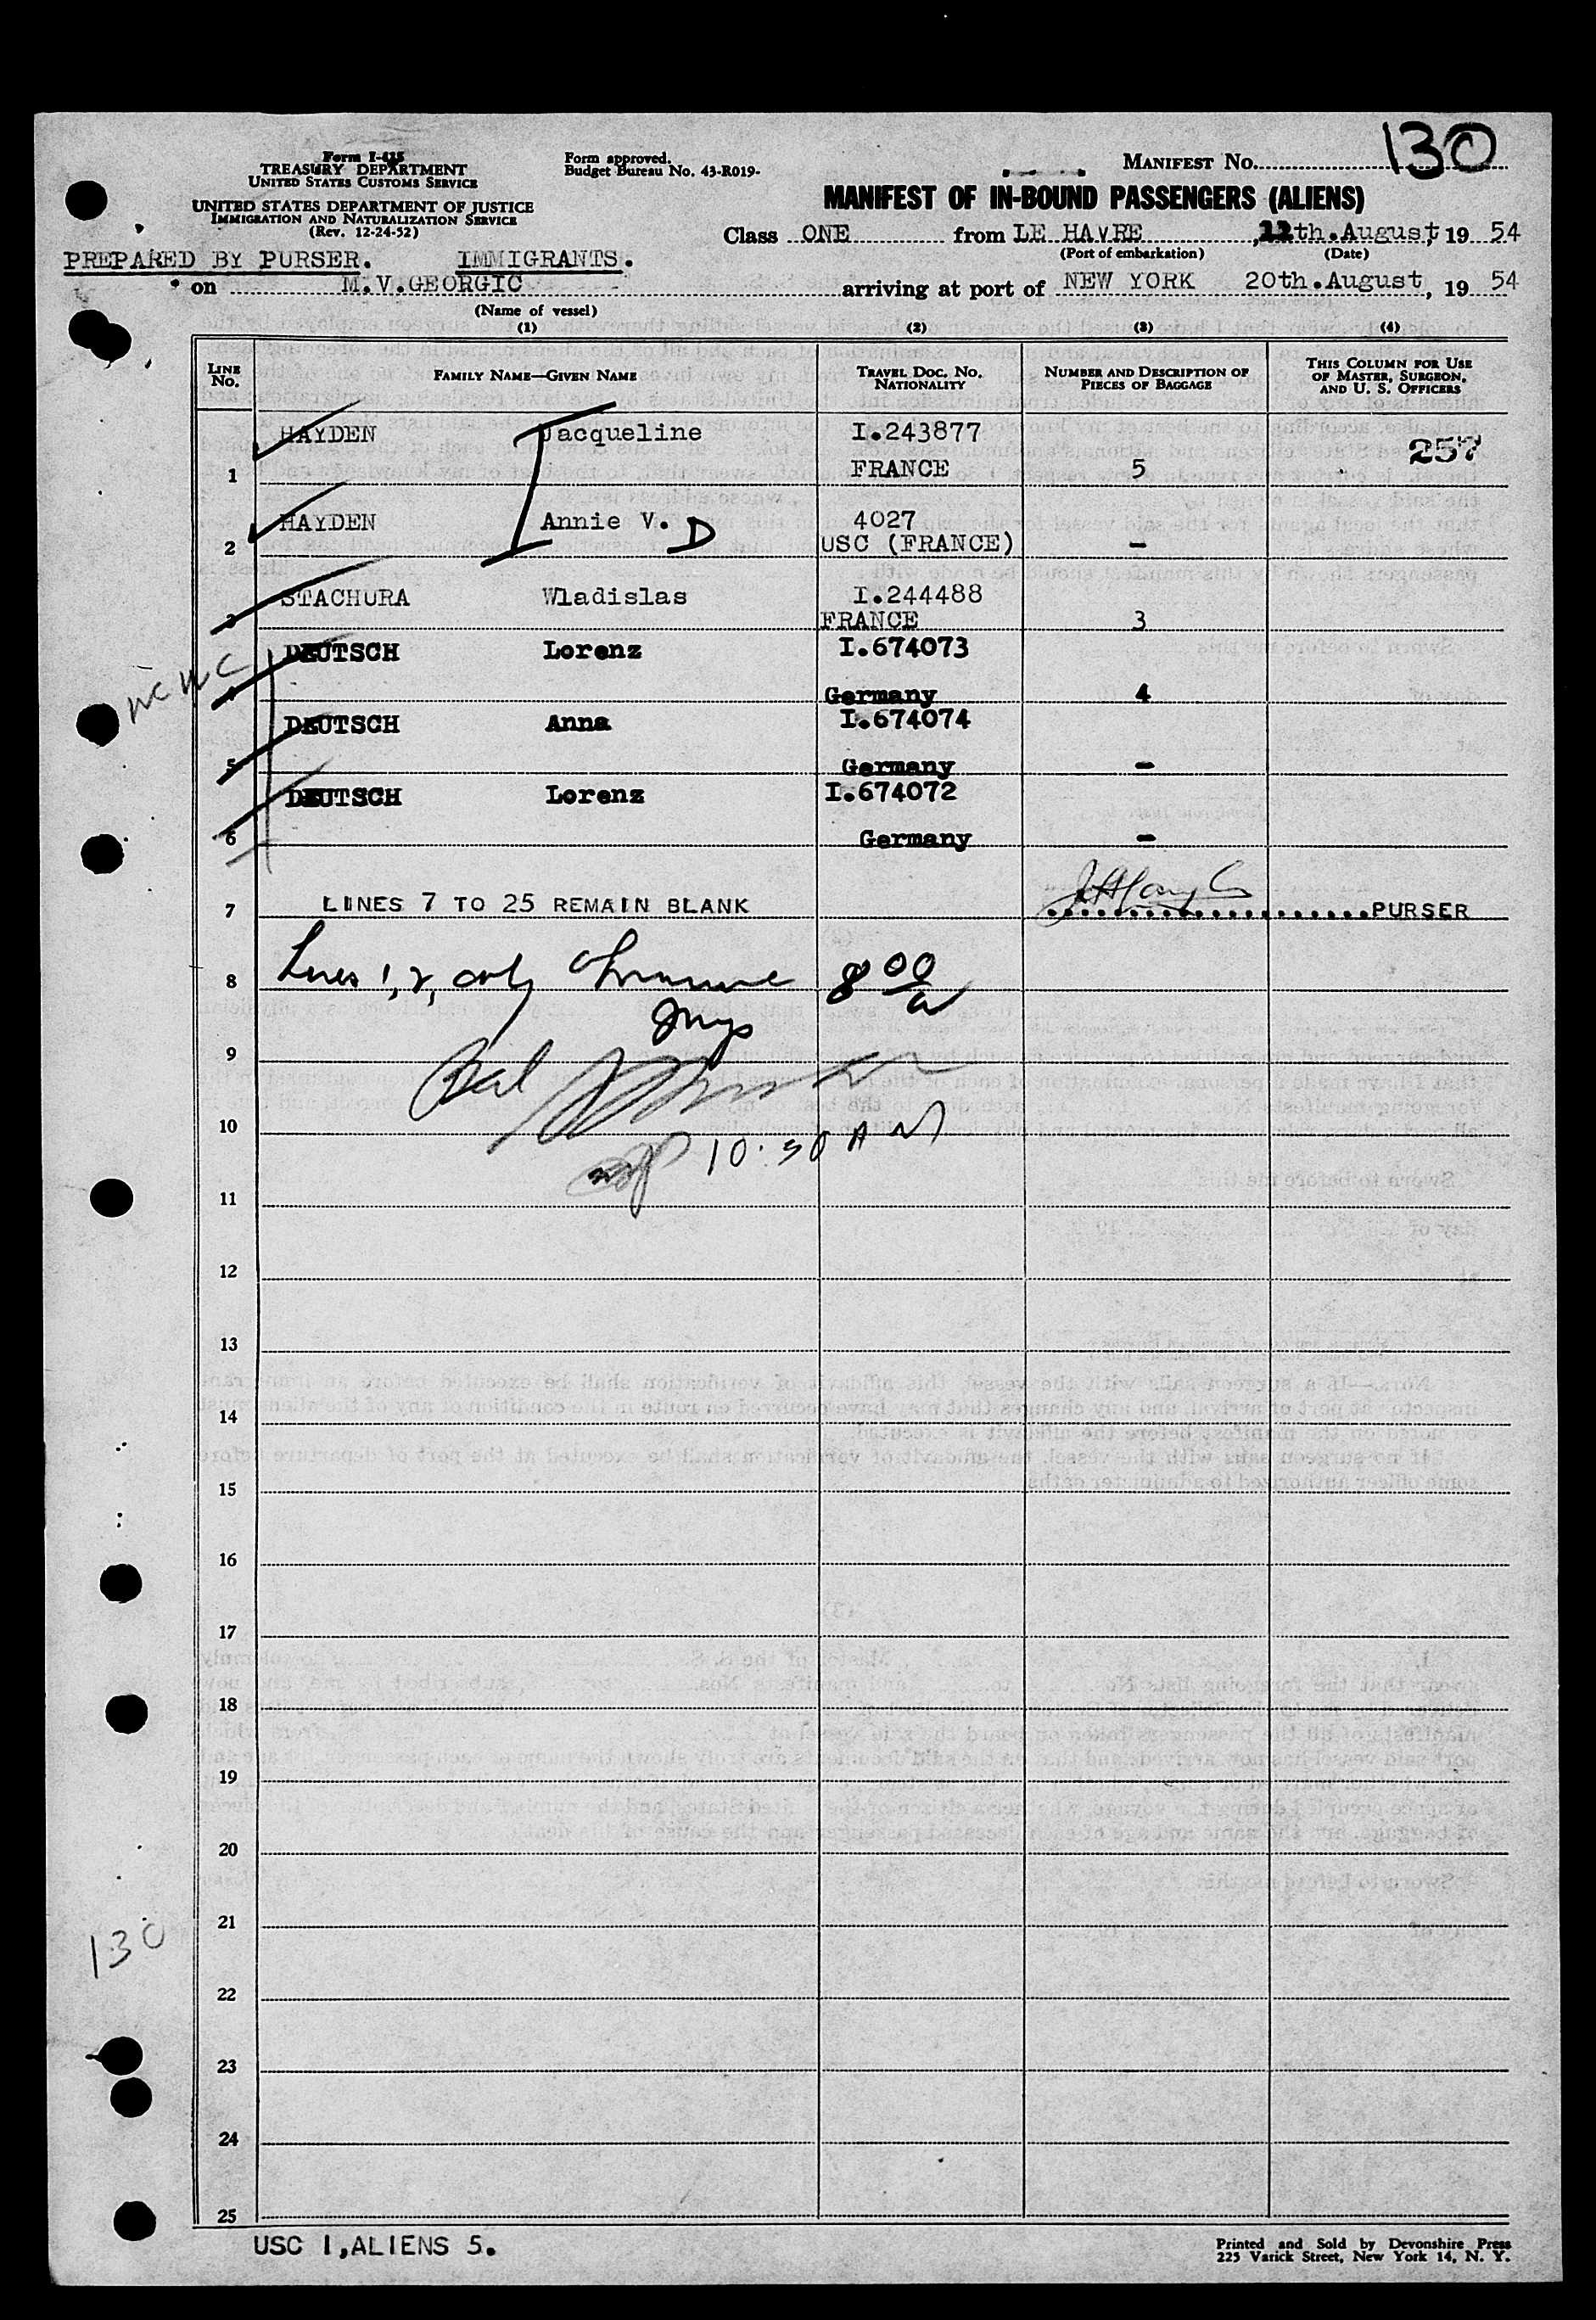 Form I-415
TREASURY DEPARTMENT
UNITED STATES CUSTOMS SERVICE
UNITED STATES DEPARTMENT OF JUSTICE
IMMIGRATION AND NATURALIZATION SERVICE
(Rev. 12-24-52)
Form approved.
Budget Bureau No. 43-R019-
MANIFEST No. 130
MANIFEST OF IN-BOUND PASSENGERS (ALIENS)
Class ONE from LE HAVRE, 12th.August, 19 54
(Port of embarkation) (Date)
PREPARED BY PURSER. IMMIGRANTS.
on M.V.GEORGIC arriving at port of NEW YORK 20th.August, 19 54
(Name of vessel)
(1) (2) (3) (4)
LINE No. FAMILY NAME—GIVEN NAME TRAVEL DOC. No. NATIONALITY NUMBER AND DESCRIPTION OF PIECES OF BAGGAGE THIS COLUMN FOR USE OF MASTER, SURGEON, AND U. S. OFFICERS
HAYDEN Jacqueline I.243877 257
1 FRANCE 5
HAYDEN Annie V. D 4027
2 USC (FRANCE) -
STACHURA Wladislas I.244488
3 FRANCE 3
DEUTSCH Lorenz I.674073
4 Germany 4
DEUTSCH Anna I.674074
5 Germany -
DEUTSCH Lorenz I.674072
6 Germany -
7 LINES 7 TO 25 REMAIN BLANK PURSER
8 Lines 1, 2, only 8 00
9
Bal
10
10:50 AM
11
12
13
14
15
16
17
18
19
20
21
130
22
23
24
25
USC 1,ALIENS 5.
Printed and Sold by Devonshire Press
225 Varick Street, New York 14, N. Y.